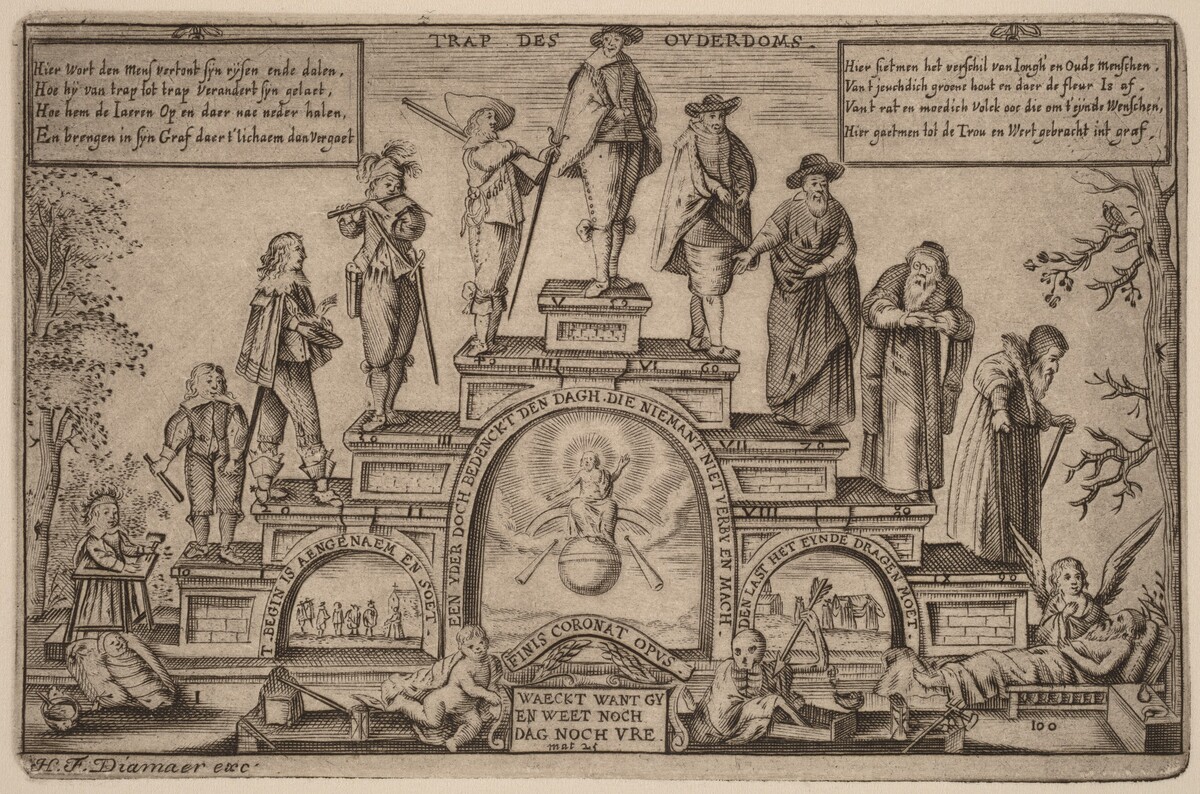 TRAP DES OVDERDOMS.
Hier wort den Mens vertont syn rysen ende dalen,
Hoe hy van trap tot trap verandert syn gelaet,
Hoe hem de Iaeren Op en daer nae neder halen,
En brengen in syn Graf daer t'lichaem dan vergaet
Hier sietmen het verschil van Iongh en Oude Menschen,
Van t jeuchdich groene hout en daer de fleur Is af.
Van t rat en moedich volck ooc die om t'eynde Wenschen,
Hier gaetmen tot de Trou en Wert gebracht int graf.
V 50
40 IIII VI 60
30 III VII 70
20 II VIII 80
IX 90
EEN YDER DOCH BEDENCKT DEN DAGH. DIE NIEMANT NIET VERBY EN MACH.
T. BEGIN IS AENGENAEM EN SOET.
DEN LAST HET EYNDE DRAGEN MOET.
FINIS CORONAT OPVS.
WAECKT WANT GY
EN WEET NOCH
DAG NOCH VRE.
mat 25
1
100
H. F. Diamaer exc.